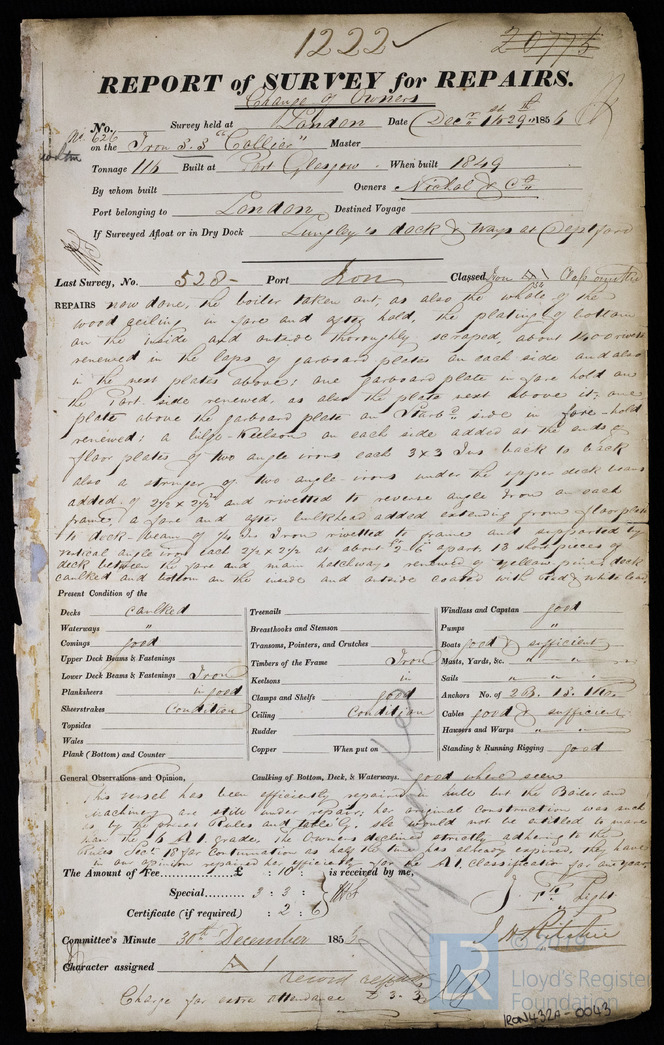 1222 ✓
20775
REPORT of SURVEY for REPAIRS.
Change of Owners
No. 626 Survey held at London Date Decr 1st & 29th 1856
on the Iron S.S. "Collier" Master
Tonnage 116 Built at Port Glasgow When built 1849
By whom built Owners Nichol & Co
Port belonging to London Destined Voyage
If Surveyed Afloat or in Dry Dock Lungley's dock & Ways at Deptford
Last Survey, No. 528 - Port Iron Classed Iron A 1
REPAIRS now done, the boiler taken out, as also the whole of the
wood ceiling in fore and after hold, the plating of bottom
on the inside and outside thoroughly scraped, about 1400 rivets
renewed in the laps of garboard plates on each side and also
in the next plates above; one garboard plate in fore hold on
the Port side renewed, as also the plate next above it; one
plate above the garboard plate on Starbd side in fore-hold
renewed; a bilge-Keelson on each side added at the ends of
floor plates of two angle irons each 3x3 Ins back to back
also a stringer of two angle-irons under the upper deck beams
added of 2½ x 2½ and rivetted to reverse angle Iron on each
frame, a fore and after bulkhead added extending from floor plates
to deck-beam of ¼ Ins Iron rivetted to frames and supported by
vertical angle iron each 2½ x 2½ at about 2-6 apart, 13 short pieces of
deck between the fore and main hatchways renewed of yellow pine, deck
caulked and bottom on the inside and outside coated with Red & white lead
Present Condition of the
Decks caulked
Waterways "
Comings good
Upper Deck Beams & Fastenings
Lower Deck Beams & Fastenings Iron
Planksheers in good
Sheerstrakes Condition
Topsides
Wales
Plank (Bottom) and Counter
Treenails
Breasthooks and Stemson
Transoms, Pointers, and Crutches
Timbers of the Frame Iron
Keelsons in
Clamps and Shelfs good
Ceiling Condition
Rudder
Copper When put on
Windlass and Capstan good
Pumps "
Boats good & sufficient
Masts, Yards, &c. " "
Sails " "
Anchors No. of 2B. 1S. 1Ke.
Cables good & sufficient
Hawsers and Warps " "
Standing & Running Rigging good
General Observations and Opinion, Caulking of Bottom, Deck, & Waterways. good where seen
This vessel has been efficiently repaired in hull but the Boiler and
machinery are still under repair; her original Construction was such
as by the present Rules and table G. she would not be entitled to more
than the 6 A 1. grade, the Owners decline strictly adhering to the
Rules Sect 18 for Continuation as half the time has already expired, the have
in our opinion repaired her efficiently for the A 1. Classification for one year
The Amount of Fee £ : 10 : is received by me,
Special 3 : 3 :
Certificate (if required) : 2 : 6
J. Light
J H Ritchie
Committee's Minute 30th December 185
Character assigned A 1
record repairs
Charge for extra attendance £ 3. 3
LR © 2019
Lloyd's Register
Foundation
IRON432A-0043